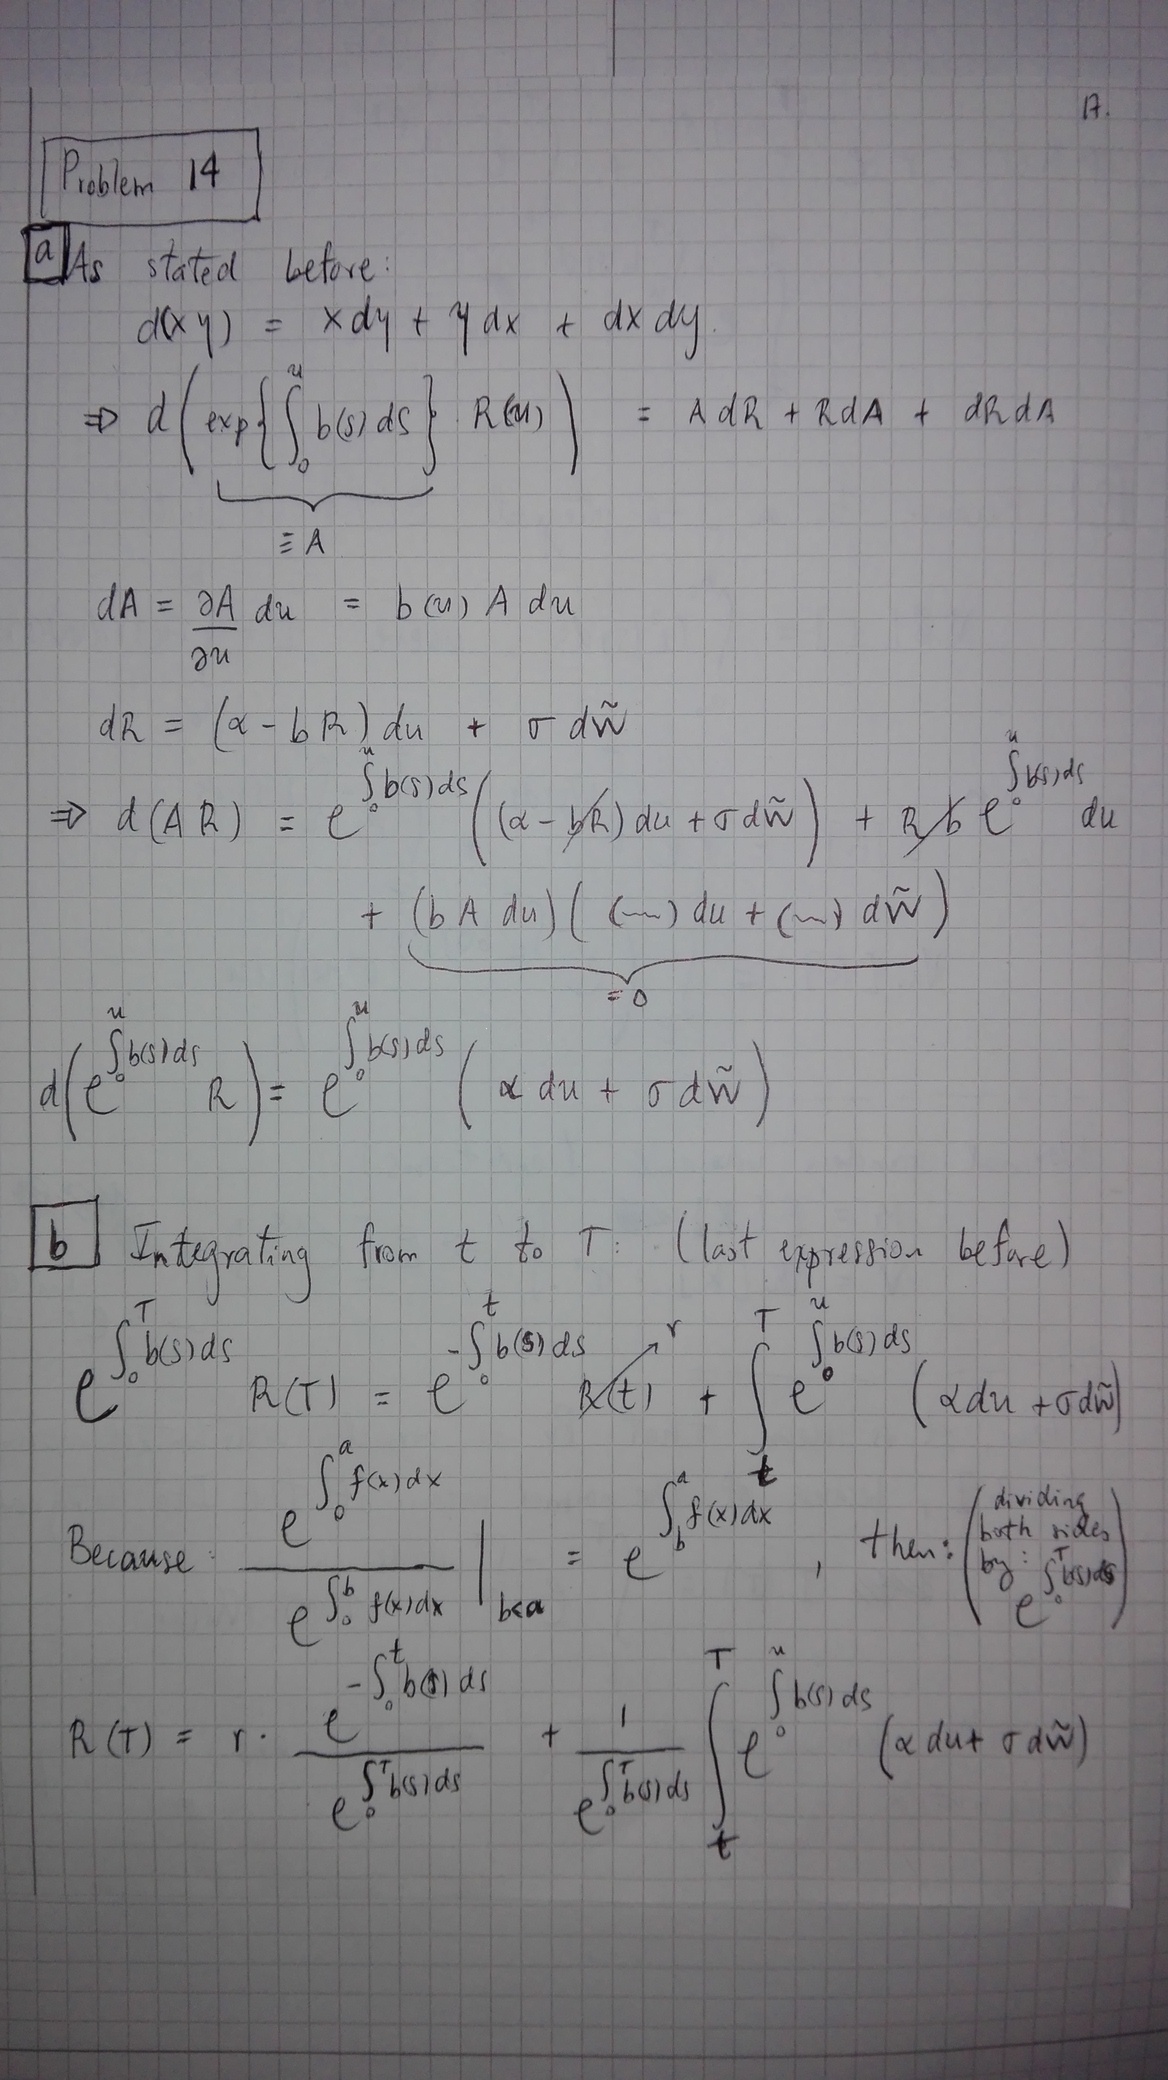 17.
Problem 14
a As stated before:
d(xy) = x dy + y dx + dx dy.
⇒ d(exp{∫₀ᵘ b(s) ds} · R(u)) = A dR + R dA + dR dA
≡ A
dA = ∂A/∂u du = b(u) A du
dR = (α - bR) du + σ dW̃
⇒ d(AR) = e^{∫₀ᵘ b(s) ds} ((α - bR) du + σ dW̃) + R b e^{∫₀ᵘ b(s) ds} du
+ (b A du)((~) du + (~) dW̃)
= 0
d(e^{∫₀ᵘ b(s) ds} R) = e^{∫₀ᵘ b(s) ds} (α du + σ dW̃)
b Integrating from t to T: (last expression before)
e^{∫₀ᵀ b(s) ds} R(T) = e^{-∫₀ᵗ b(s) ds} R(t) r + ∫ₜᵀ e^{∫₀ᵘ b(s) ds} (α du + σ dW̃)
Because: e^{∫₀ᵃ f(x) dx} / e^{∫₀ᵇ f(x) dx} |_{b<a} = e^{∫_bᵃ f(x) dx}, then: (dividing both sides by: e^{∫₀ᵀ b(s) ds})
R(T) = r · e^{-∫₀ᵗ b(s) ds} / e^{∫₀ᵀ b(s) ds} + 1 / e^{∫₀ᵀ b(s) ds} ∫ₜᵀ e^{∫₀ᵘ b(s) ds} (α du + σ dW̃)